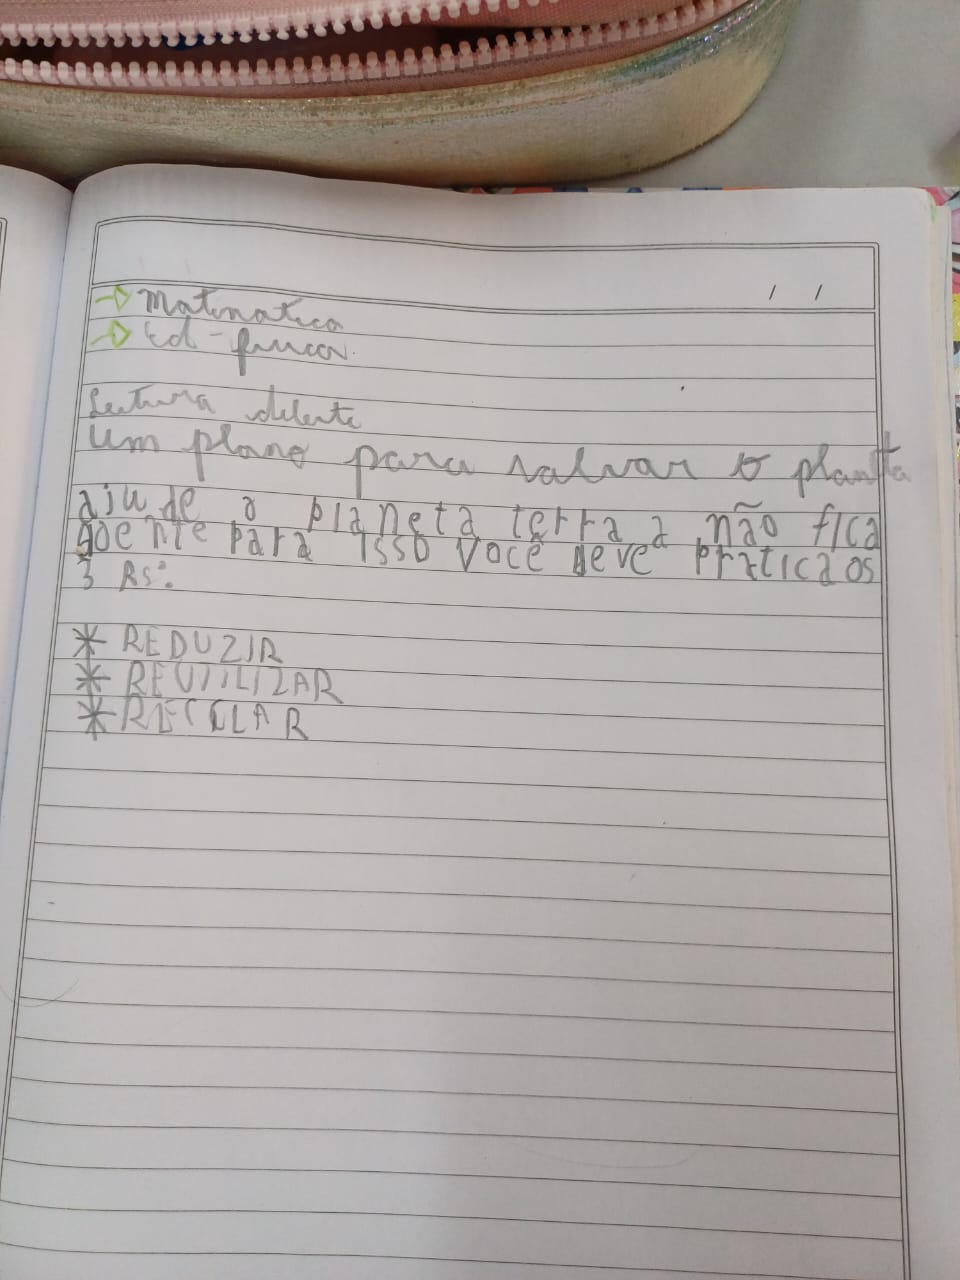 / /
→ Matematica
→ Ed - fisica.
Leitura deleite
Um plano para salvar o planta
ajude o planeta terra a não fica
doente para isso você deve praticaos
3 Rs:
* REDUZIR
* REUTILIZAR
* RECCLAR